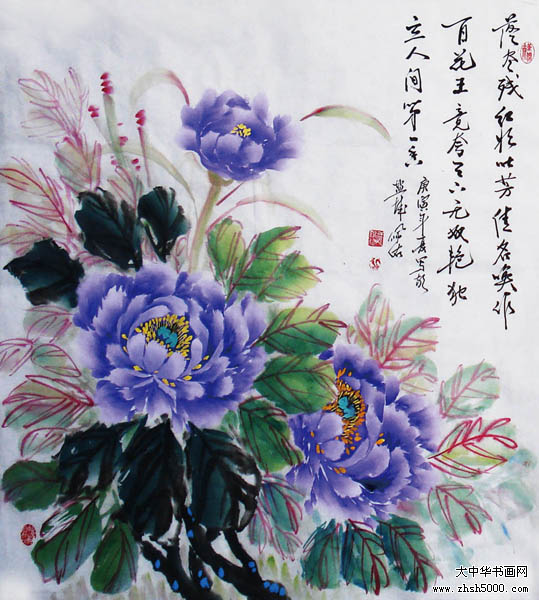 落尽残红始吐芳佳名唤作
百花王竟夸天下无双艳独
立人间第一香
庚寅年春写于
盐城
大中华书画网
www.zhsh5000.com